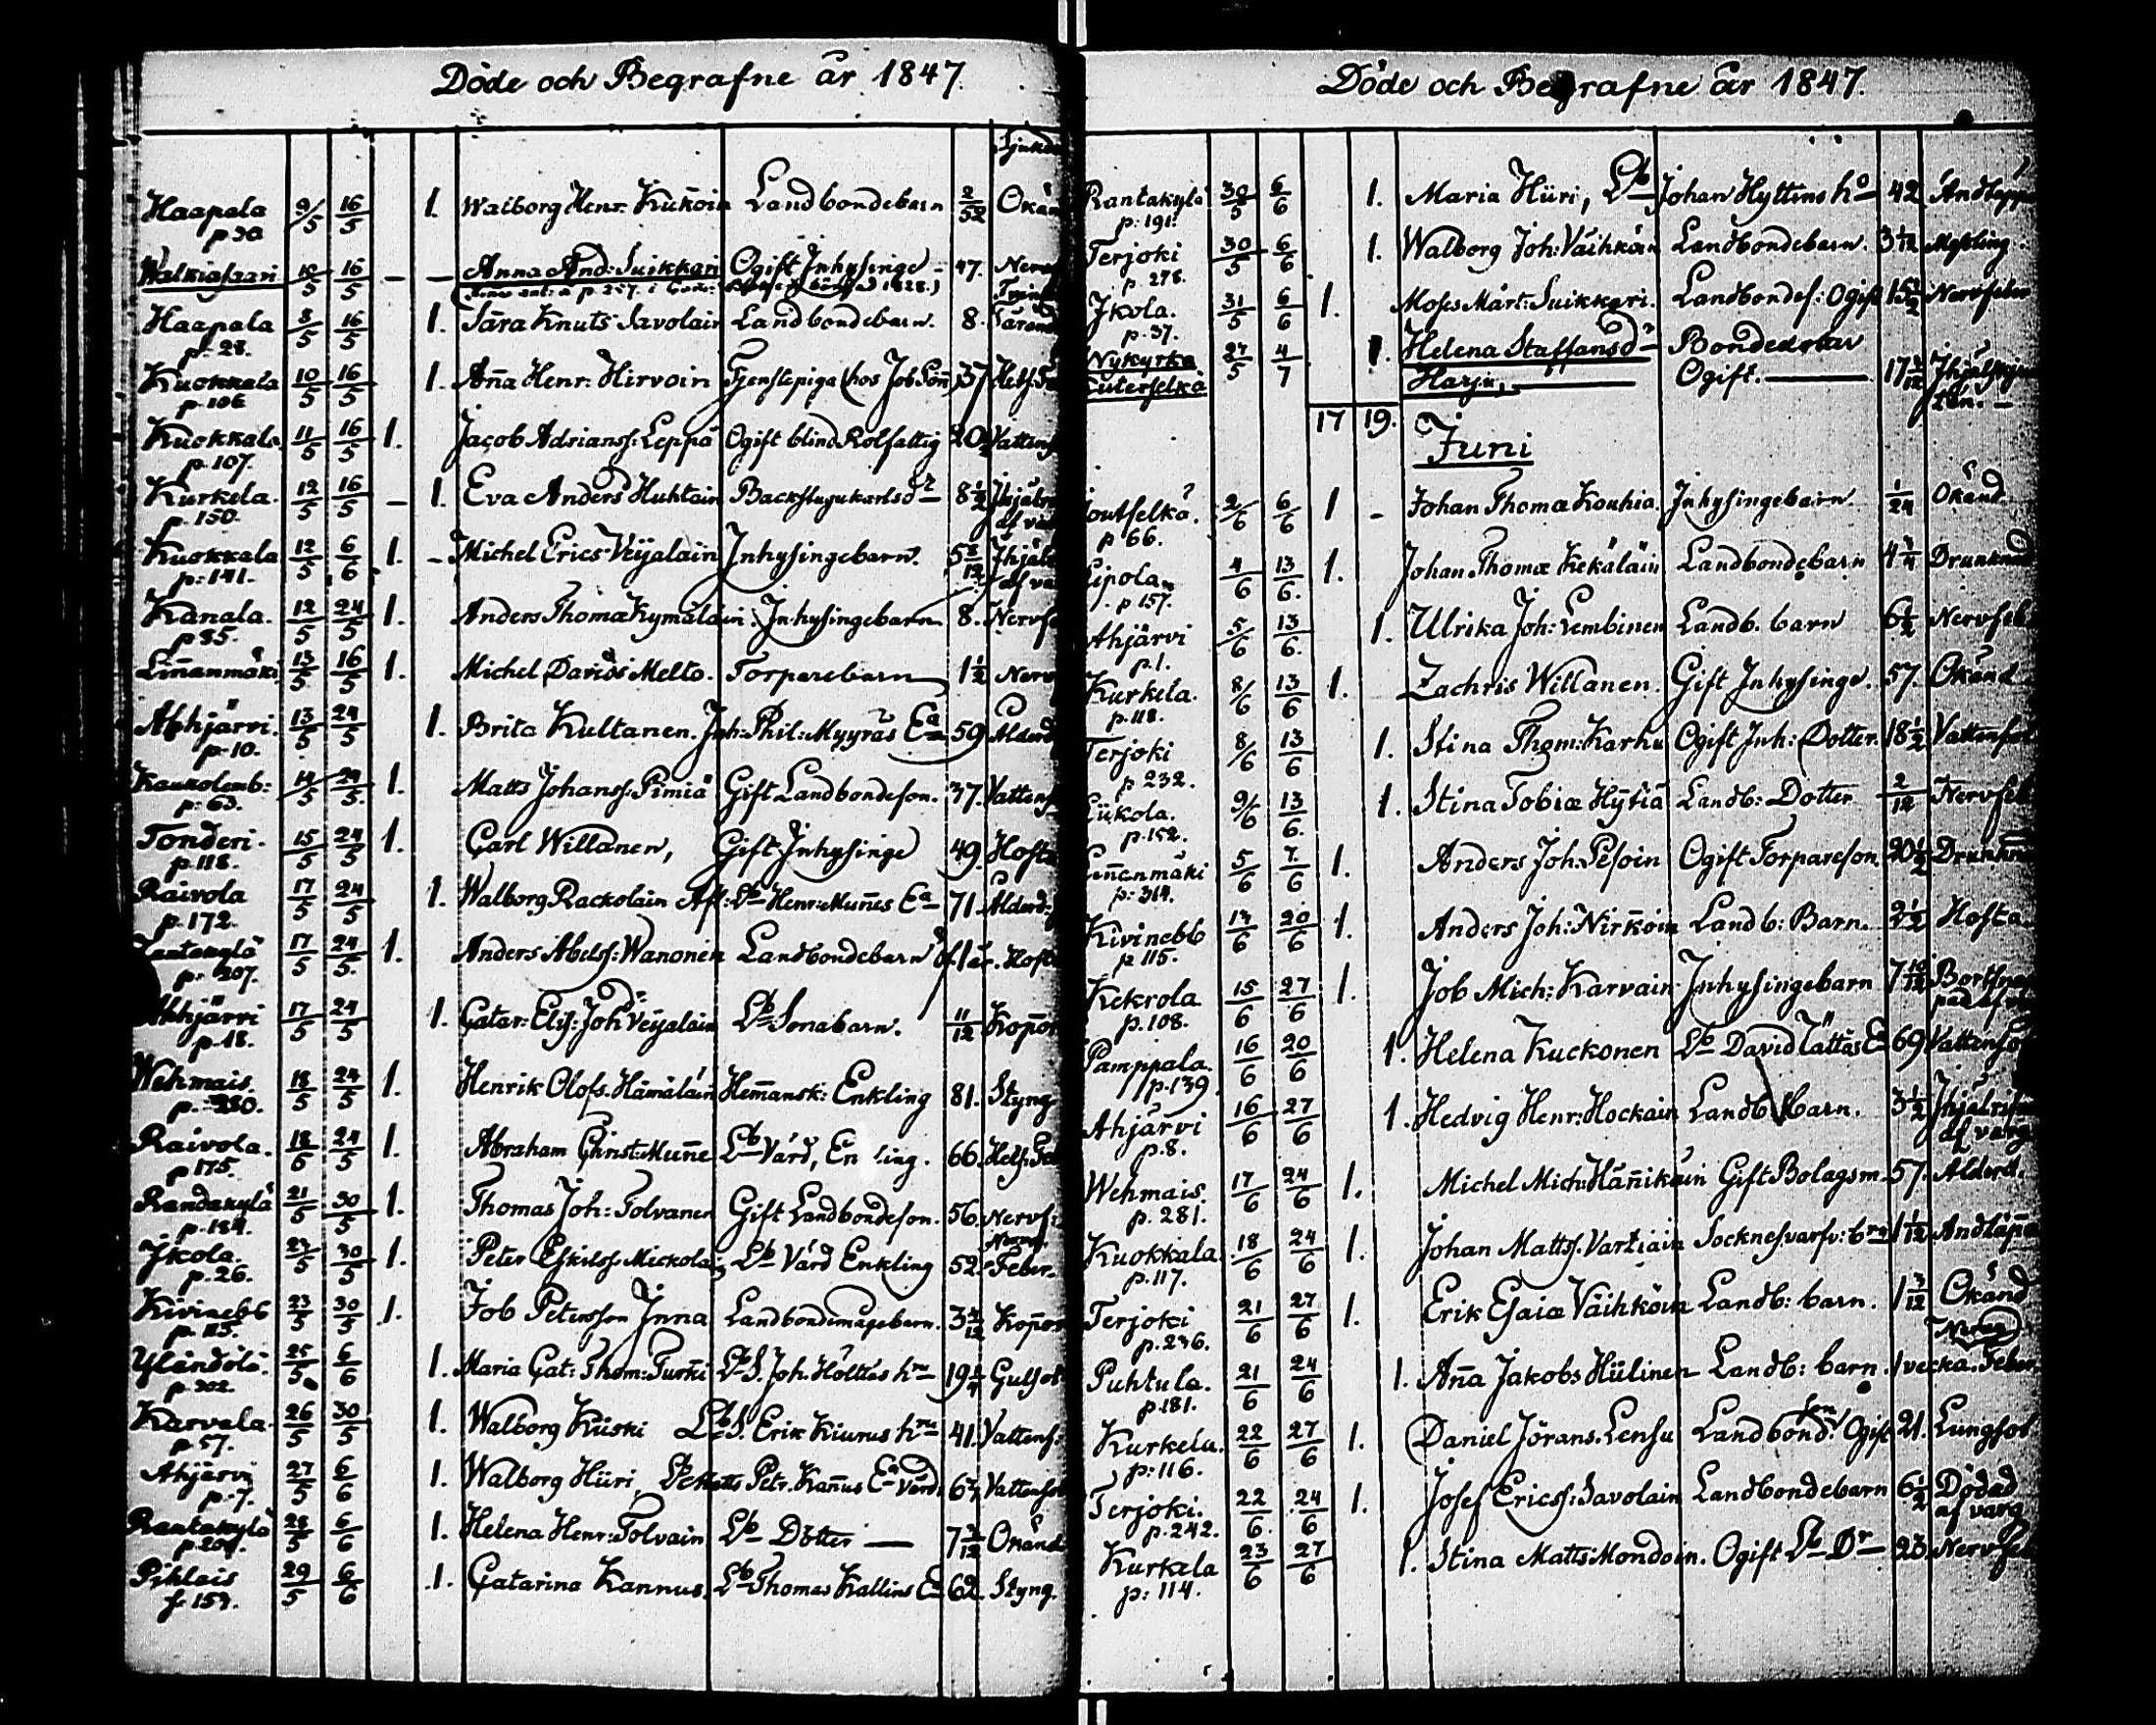 Döde och Begrafne år 1847.
Haapala 9/5 16/5 1. Walborg Henr. Kuk̄oin Landbondebarn 2/52 Okän
Walkiasaari 10/5 16/5 - - Anna And: Suikkari Ogift Inhysinge - 47. Nerv
Haapala 8/5 16/5 1. Sara Knuts Savolain Landbondebarn. 8.
p. 28.
Kuokkala 10/5 16/5 1. An̄a Henr. Hirvoin Tjenstepiga (hos Job Sön̄) 37
p. 106
Kuokkala 11/5 16/5 1. Jacob Adrianss: Leppä Ogift blind Rolfattig 20 Vattens
p. 107.
Kurkela. 12/5 16/5 - 1. Eva Anders Huhtain Backstugukarlsdr 8 1/2 Ihjälr
p. 150. af va
Kuokkala 12/5 6/6 1. - Michel Erics Veijalain Inhysingebarn. 5 8/12 Ihjäl
p: 141. af va
Kanala. 12/5 24/5 1. Anders Thomæ Kymäläin Inhysingebarn 8. Nervf
p 85.
Lin̄anmäki 13/5 16/5 1. Michel Davids Melto. Torparebarn 1 1/2 Nerv
Ahjärvi. 13/5 24/5 1. Brita Kultanen. Joh: Phil: Myyräs Ea 59 Alderd
p. 10.
Kaukolemb: 14/5 24/5. 1. Matts Johanss: Pimiä Gift Landbondeson. 37. Vattens
p: 63.
Tonderi. 15/5 24/5 1. Carl Willanen, Gift Inhysinge 49. Hosta
p. 118.
Raivola 17/5 24/5 1. Walborg Rackolain Afl: Lb Henr: Mun̄es Ea 71 Alderd:
p. 172.
17/5 24/5. 1. Anders Abelss: Wanonen Landbondebarn 1 år. Host
p. 207.
Ahjärvi 17/5 24/5 1. Catar: Elis: Joh Veijalain Lb Sonabarn. 11/12 Kop̄or
p. 18.
Wehmais. 18/5 24/5 1. Henrik Olofs. Hämäläin Hem̄ansk: Enkling 81. Styng
p. 280.
Raivola. 18/5 24/5 1. Abraham Christ: Mun̄e Lb Värd, Enkling. 66.
p 175.
Randakylä 21/5 30/5 1. Thomas Joh: Tolvanen Gift Landbondeson. 56. Nervf:
p. 184.
Ikola. 23/5 30/5 1. Peter Eskilss. Mickolain Lb Värd Enkling 52. Feber.
p. 26.
Kivinebb 23/5 30/5 1. Job Petersson Inna Landbondemågebarn. 3 4/12 Kop̄or
p. 115.
Yländölä. 25/5 6/6 1. Maria Cat: Thom: Turk̄i Lb S. Joh. Hölttäs hru 19 1/4 Gulsot
p. 302.
Karvala. 26/5 30/5 1. Walborg Kiiski Lb S. Erik Kiurus hru 41. Vattens:
p 57.
Ahjärvi 27/5 6/6 1. Walborg Hiiri, Lb Matts Petr. Kan̄us Ea Värd. 67 Vattensot
p. 7.
Rantakylä 28/5 6/6 1. Helena Henr: Tolvain Lb Dotter — 7 3/12 Okänd
Piklais 29/5 6/6 1. Catarina Kannus. Lb Thomas Kallins Ea 62. Styng.
Döde och Begrafne år 1847.
Rantakylä 30/5 6/6 1. Maria Hiiri, Lb Johan Hyttens ho 42 Andtäpp
p. 191.
Terjoki 30/5 6/6 1. Walborg Joh: Väihköin Landbondebarn. 3 Messling.
p. 278.
Ikola. 31/5 6/6 1. Moses Märt: Suikkari. Landbondes: Ogift 15 1/2 Nervfeber
p. 37.
Nykyrka 27/5 4/7 1. Helena Staffansdr Bondedotter
Liiterselkä Harju, — Ogift. — 17
17 19.
Juni
Joutselkä. 2/6 6/6 1 - Johan Thomæ Kouhia. Inhysingebarn. 1/24 Okänd.
p 66.
Lipola 4/6 13/6. 1. Johan Thomæ Kekäläin Landbondebarn 4 3/4 Drunknad
p 157.
Ahjärvi 5/6 13/6. 1. Ulrika Joh: Lembinen Landb. barn 6 1/2 Nervfeb
p. 1.
Kurkela. 8/6 13/6 1. Zachris Willanen. Gift Inhysinge. 57. Okänd
p. 118.
Terjoki 8/6 13/6 1. Stina Thom: Karhu Ogift Inh: Dotter. 18 1/2 Vattensot
p 232.
Liikola. 9/6 13/6. 1. Stina Tobiæ Hytiä Landb: Dotter 2/12 Nervfeb
p. 152.
Lin̄enmäki 5/6 7/6 1. Anders Joh: Pesoin Ogift Torpareson. 20 1/2 Drunkn̄
p: 314.
Kivinebb 14/6 20/6 1. Anders Joh: Nirk̄oin Landb: Barn. 2 1/2 Hosta.
p 115.
Kekrola 15/6 27/6 1. Job Mich: Karvain Inhysingebarn 7 10/12 Bortsnap
p. 108. pad af
Pamppala. 16/6 20/6 1. Helena Kuckonen Lb David Tättäs Ea 69 Vattensot
p. 139
Ahjärvi 16/6 27/6 1. Hedvig Henr: Hockain Landb barn. 3 1/2 Ihjälrifven
p. 8. af varg
Wehmais. 17/6 24/6 1. Michel Mich: Hän̄ikäin Gift Bolagsm. 57. Alderd.
p. 281.
Kuokkala. 18/6 24/6 1. Johan Matts. Vartiain Socknesvarfv: brn 1 1/12 Andtäp̄a
p. 117.
Terjoki 21/6 27/6 1. Erik Esaiæ Väihköin Landb: barn. 1 3/12 Okänd
p. 236.
Puhtula. 21/6 24/6 1. An̄a Jakobs Hiilinen Landb: barn. 1 vecka. Feber
p. 181.
Kurkela. 22/6 27/6 1. Daniel Jörans. Lensu Landbond: son Ogift 21. Lungsot
p: 116.
Terjoki. 22/6. 24/6 1. Josef Ericss: Savolain Landbondebarn 6 1/2 Dödad
p. 242. af varg
Kurkala 23/6 27/6 1. Stina Matts Mondoin. Ogift Lb Dr 23. Nervfeb
p: 114.